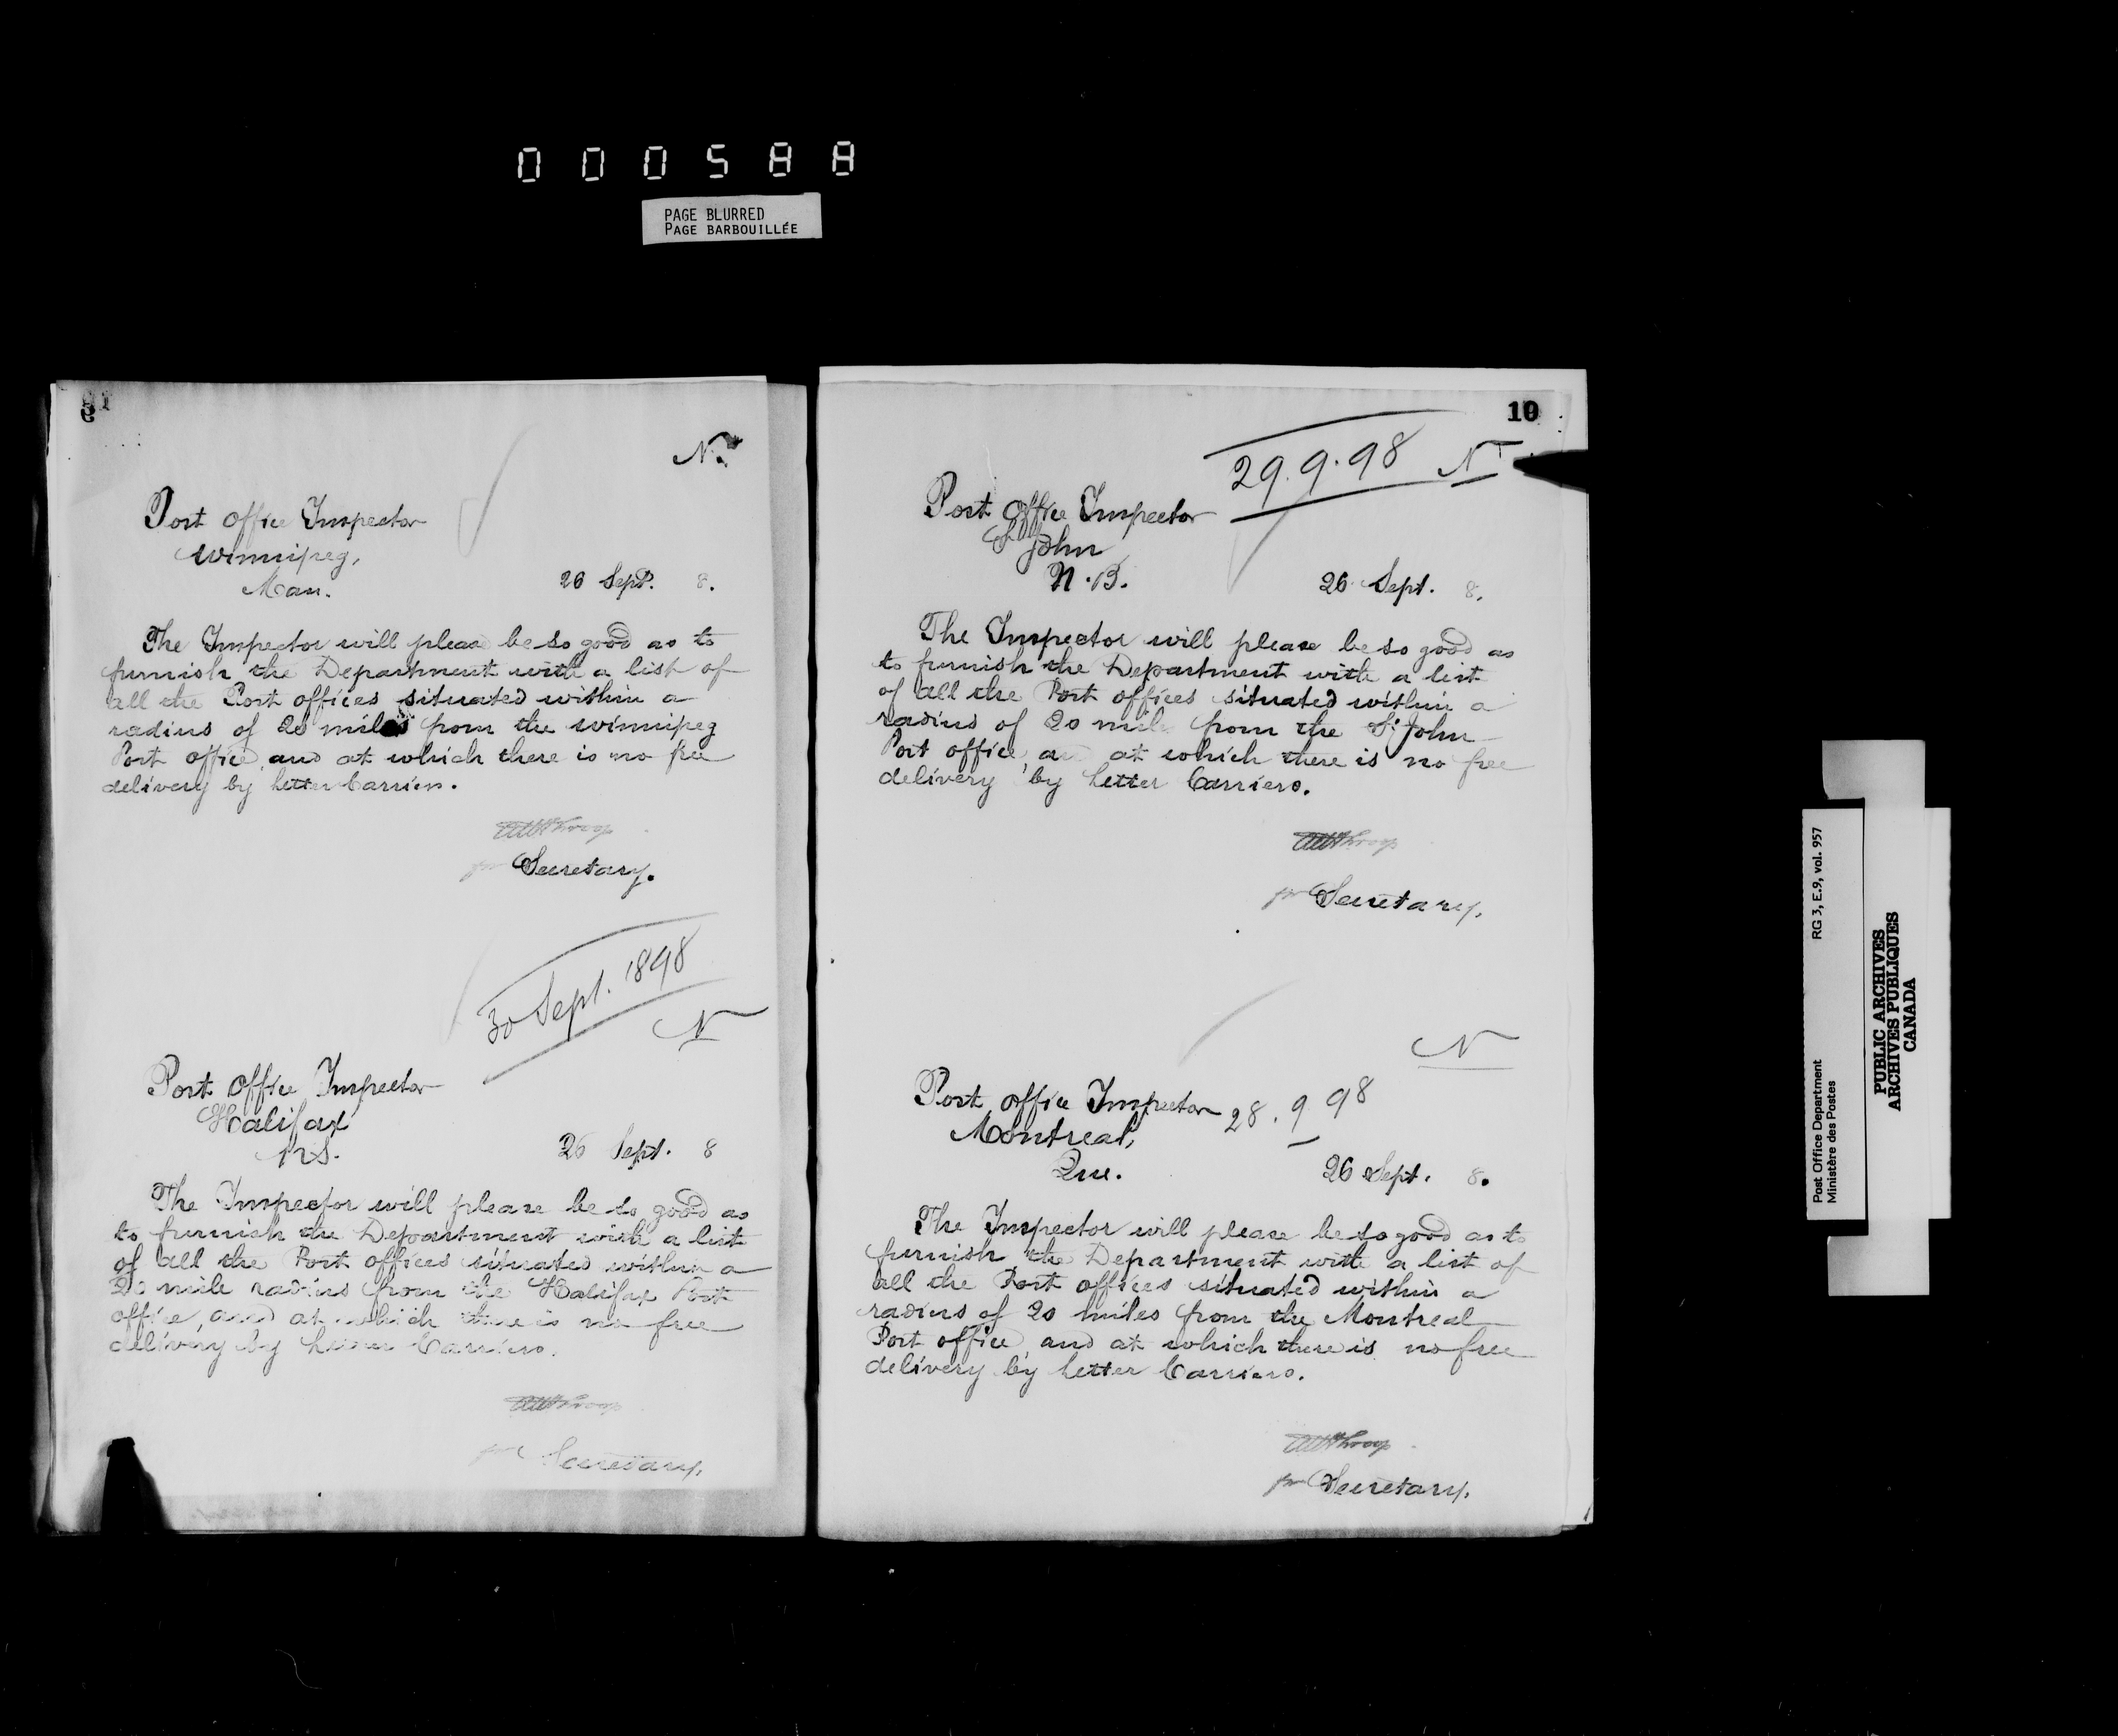 000588
PAGE BLURRED
PAGE BARBOUILLÉE
N.
Post Office Inspector
Winnipeg,
Man.
26 Sept. 8.
The Inspector will please be so good as to
furnish the Department with a list of
all the Post offices situated within a
radius of 20 miles from the Winnipeg
Post office, and at which there is no free
delivery by Letter Carriers.
for Secretary.
30 Sept. 1898
N
Post Office Inspector
Halifax
N.S.
26 Sept. 8
The Inspector will please be so good as
to furnish the Department with a list
of all the Post offices situated within a
20 mile radius from the Halifax Post
office, and at which there is no free
delivery by Letter Carriers.
for Secretary.
10
29.9.98 N
Post Office Inspector
St John
N.B.
26 Sept. 8.
The Inspector will please be so good as
to furnish the Department with a list
of all the Post offices situated within a
radius of 20 mile from the St. John
Post office, and at which there is no free
delivery by Letter Carriers.
for Secretary.
N
Post Office Inspector 28.9 98
Montreal,
Que.
26 Sept. 8.
The Inspector will please be so good as to
furnish the Department with a list of
all the Post offices situated within a
radius of 20 miles from the Montreal
Post office, and at which there is no free
delivery by Letter Carriers.
for Secretary.
Post Office Department RG 3, E.9, vol. 957
Ministère des Postes
PUBLIC ARCHIVES
ARCHIVES PUBLIQUES
CANADA